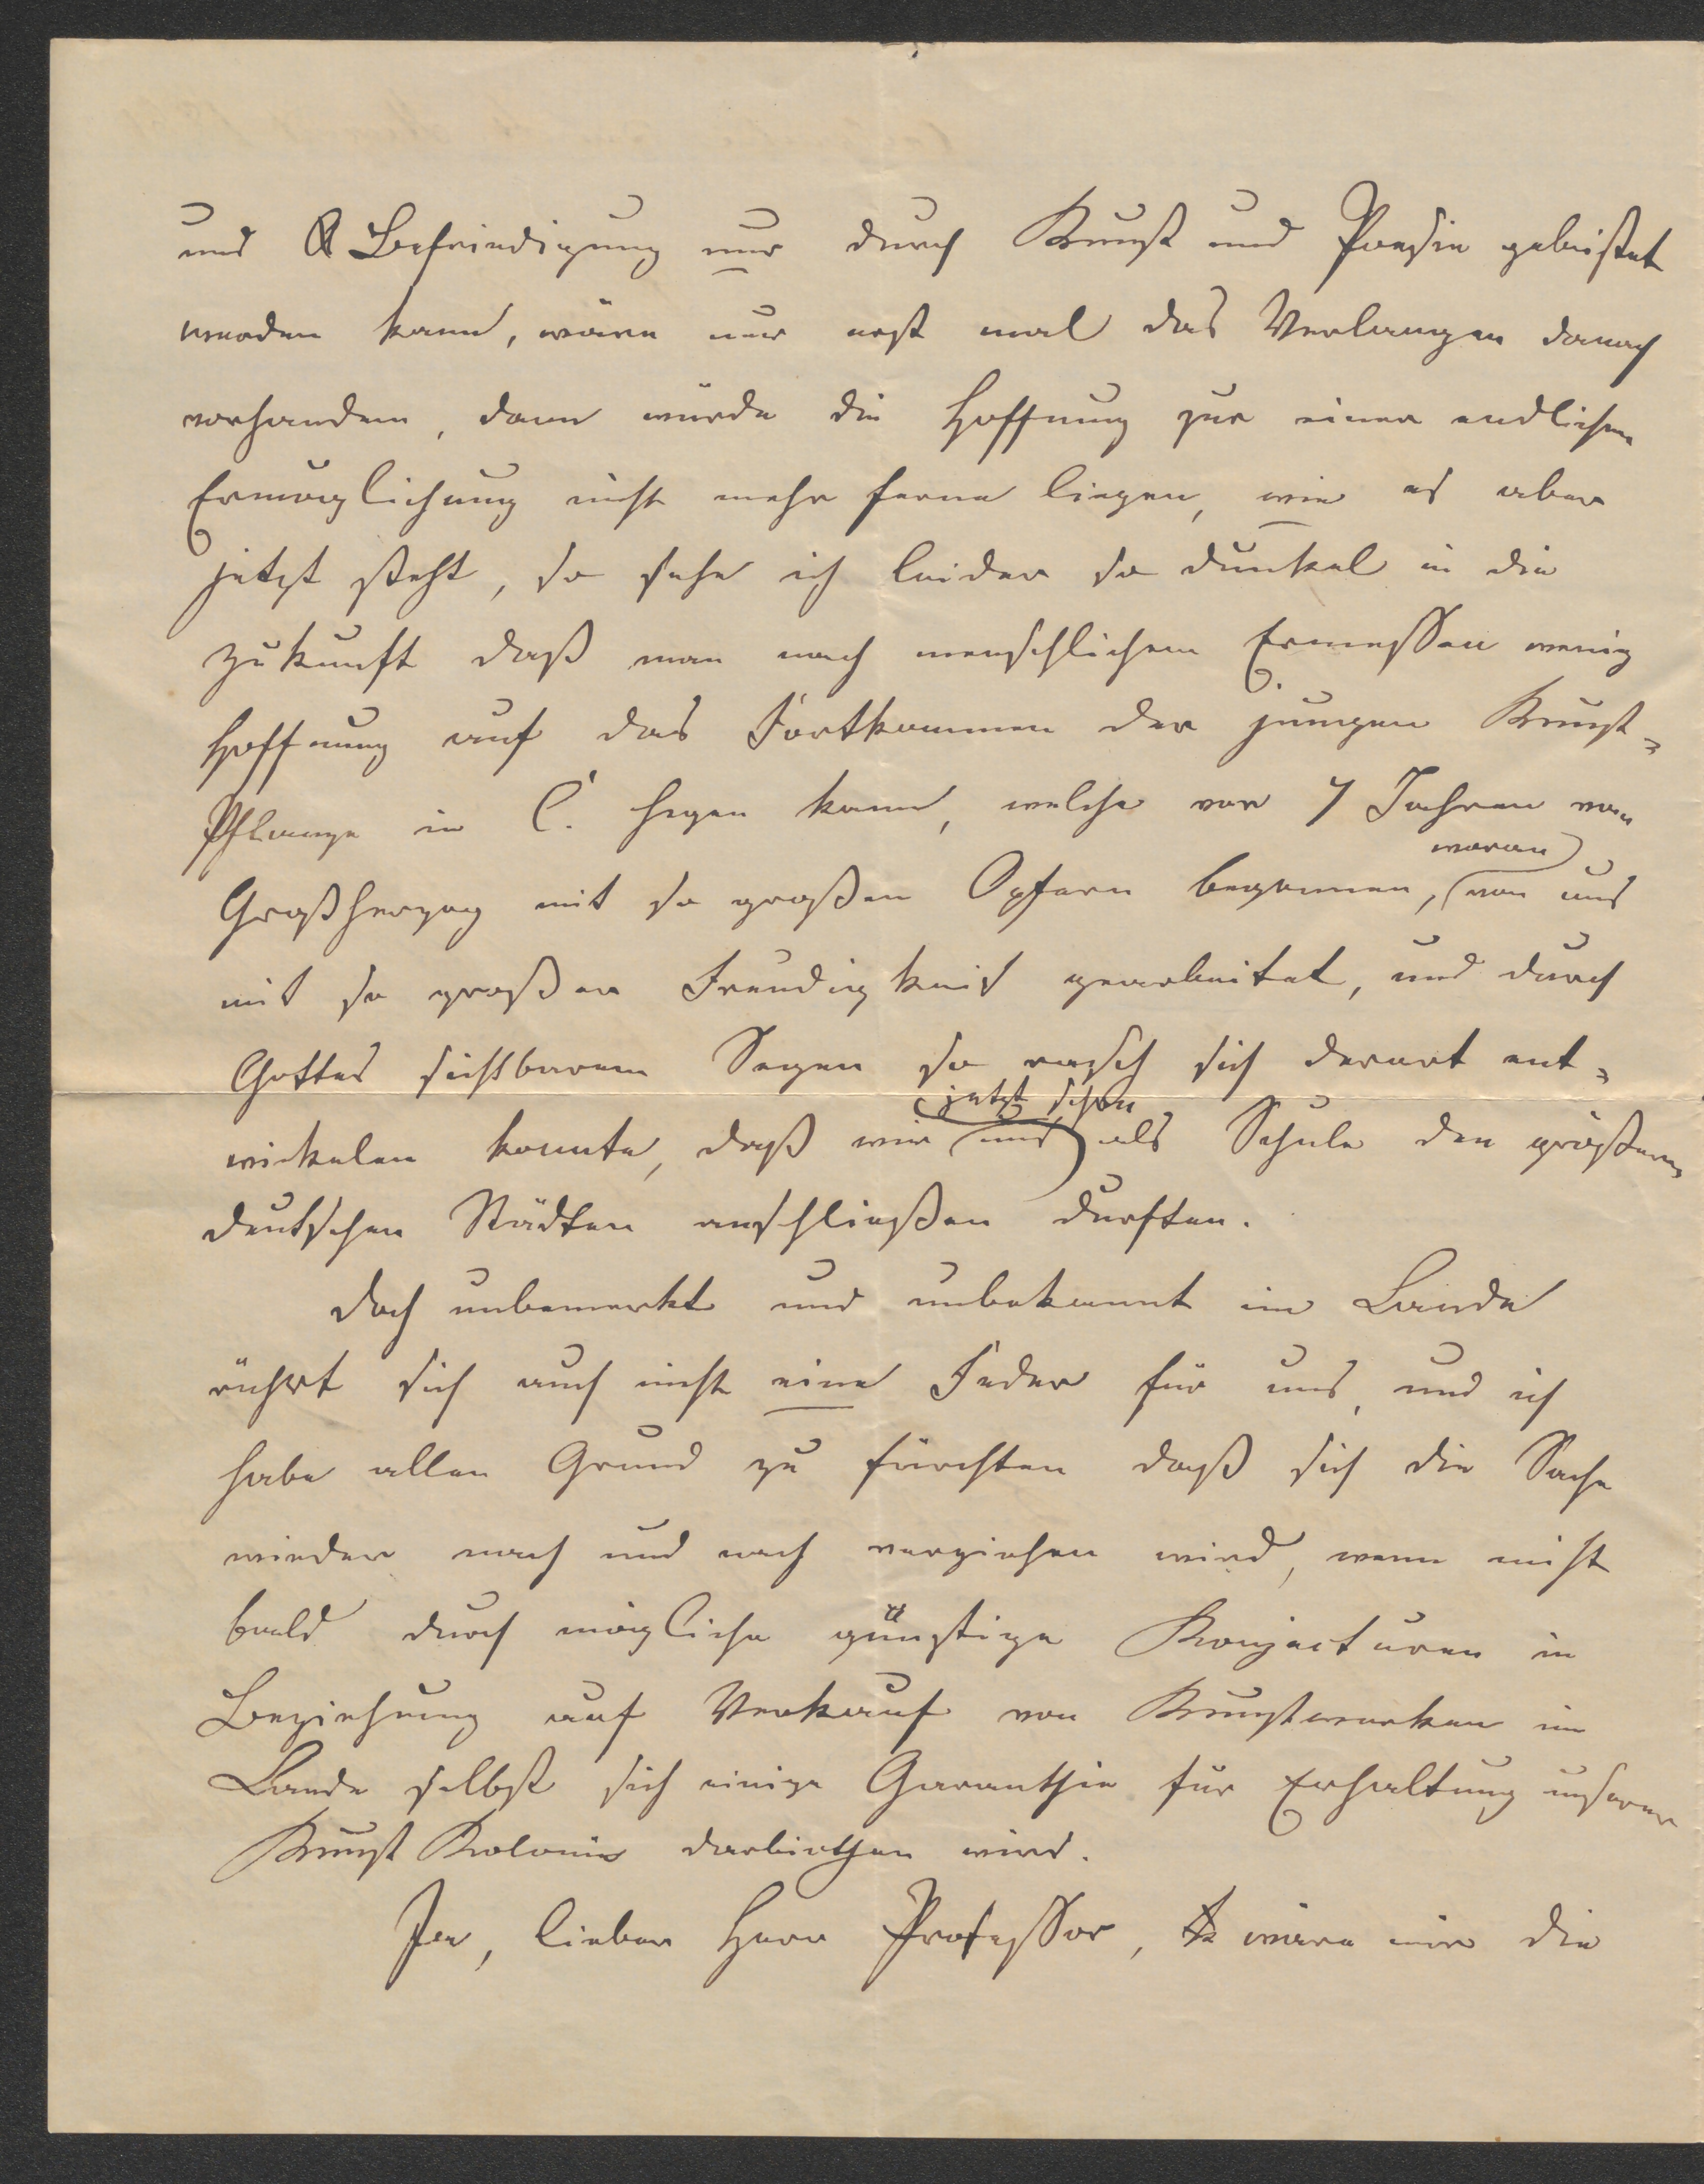 und Befriedigung nur durch Kunst und Poesie geleistet
werden kann, wäre nur erst mal das Verlangen danach
vorhanden, dann würde die Hoffnung zur einer endlichen
Ermöglichung nicht mehr ferne liegen, wie es aber
jetzt steht, so sehe ich leider so dunkel in die
Zukunft daß man nach menschlichem Ermessen wenig
Hoffnung auf das Fortkommen der jungen Kunst-
Pflanze in C. hegen kann, welche vor 7 Jahren vom
woran
Großherzog mit so großen Opfern begonnen, von uns
mit so großer Freudigkeit gearbeitet, und durch
Gottes sichtbarem Segen so rasch sich derart ent-
jetzt schon
wickelen konnte, daß wir uns als Schule den größeren
deutschen Städten anschließen durften.
Doch unbemerkt und unbekannt im Lande
rührt sich auch nicht eine Feder für uns, und ich
habe allen Grund zu fürchten daß sich die Sache
wieder nach und nach verziehen wird, wenn nicht
bald durch mögliche günstige Konjecturen in
Beziehung auf Verkauf von Kunstwerken im
Lande selbst sich einige Garanthie für Erhaltung unserer
Kunst Kolonie darbiethen wird.
Ja, lieber Herr Professor, wäre mir die